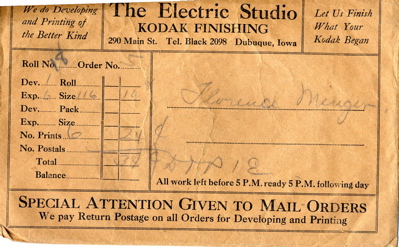 We do Developing
and Printing of
the Better Kind
The Electric Studio
KODAK FINISHING
290 Main St. Tel. Black 2098 Dubuque, Iowa
Let Us Finish
What Your
Kodak Began
Roll No. 8 Order No.
Dev. 1 Roll
Exp. 6 Size 116 10
Dev. Pack
Exp. Size
No. Prints 6 24
No. Postals
Total
Balance
Florence Minger
All work left before 5 P.M. ready 5 P.M. following day
SPECIAL ATTENTION GIVEN TO MAIL ORDERS
We pay Return Postage on all Orders for Developing and Printing